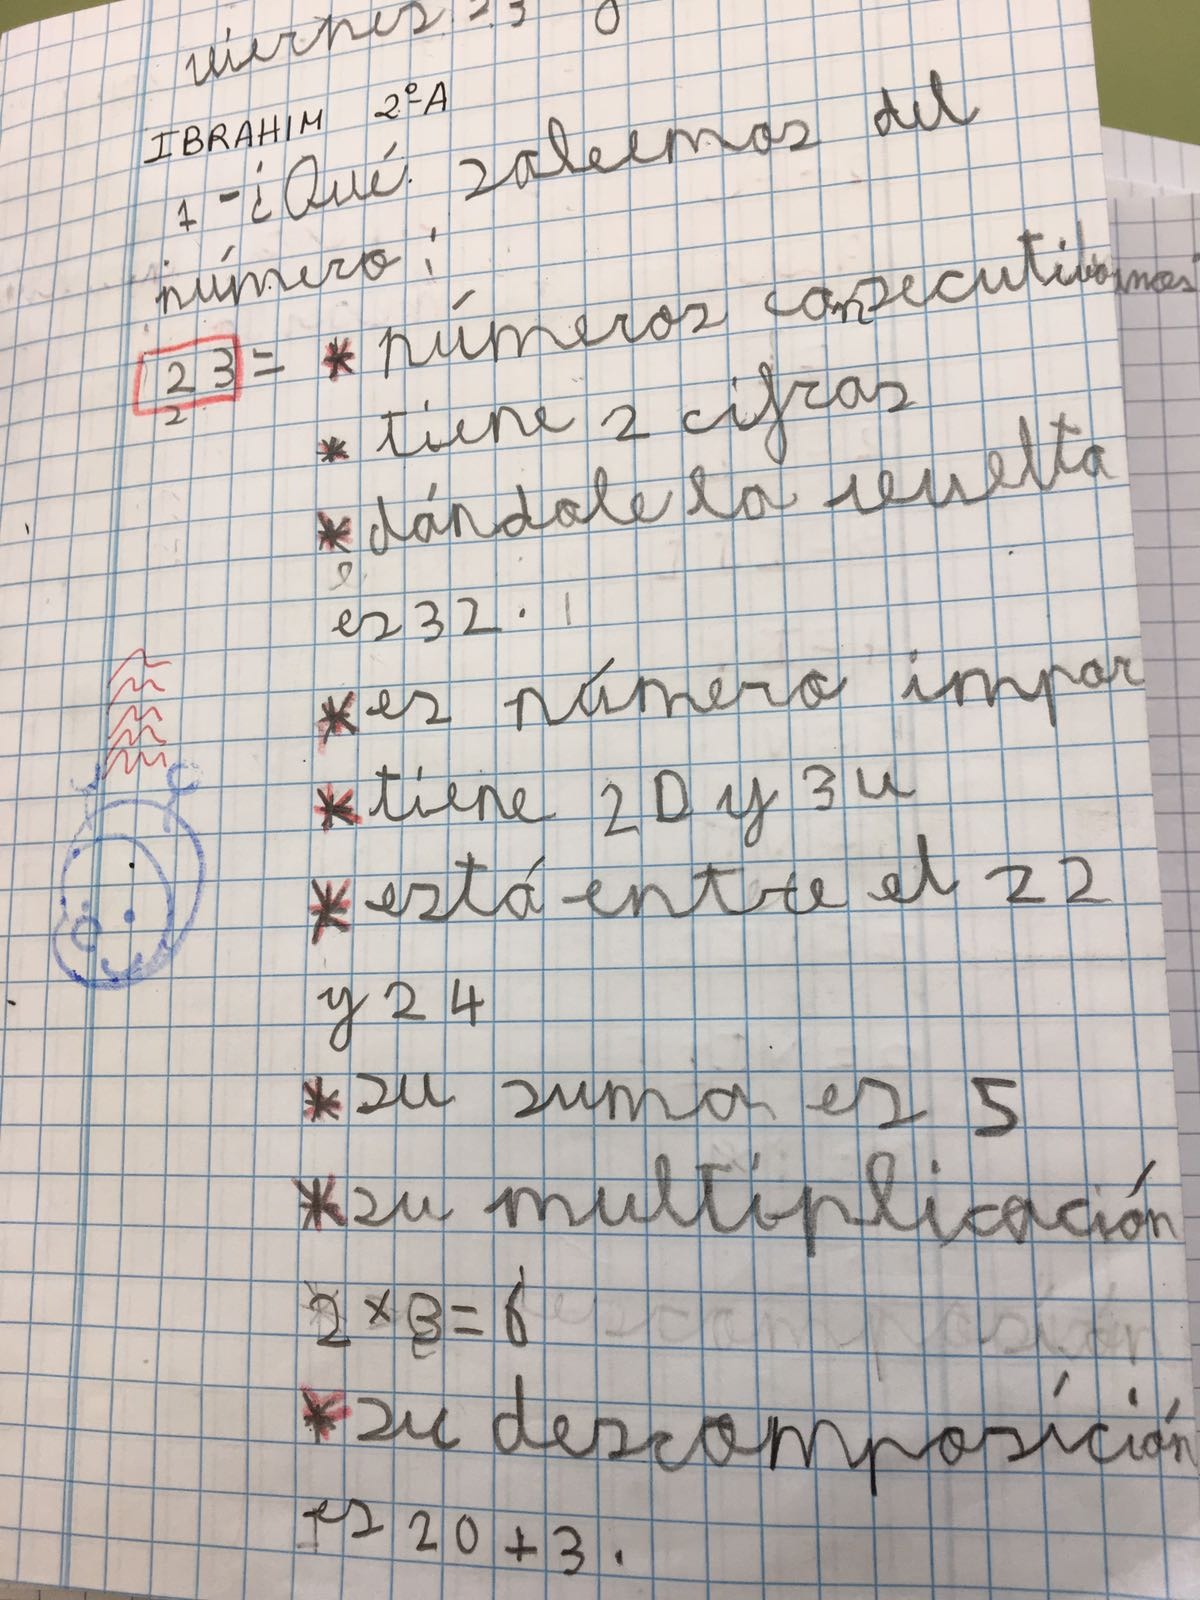 viernes 23
IBRAHIM 2ºA
1-¿Qué sabemos del
número:
23= * números consecutivos
2
* tiene 2 cifras
* dándole la vuelta
es 32.
* es número impar
* tiene 2D y 3U
* está entre el 22
y 24
* su suma es 5
* su multiplicación
2×3=6
* su descomposición
es 20+3.